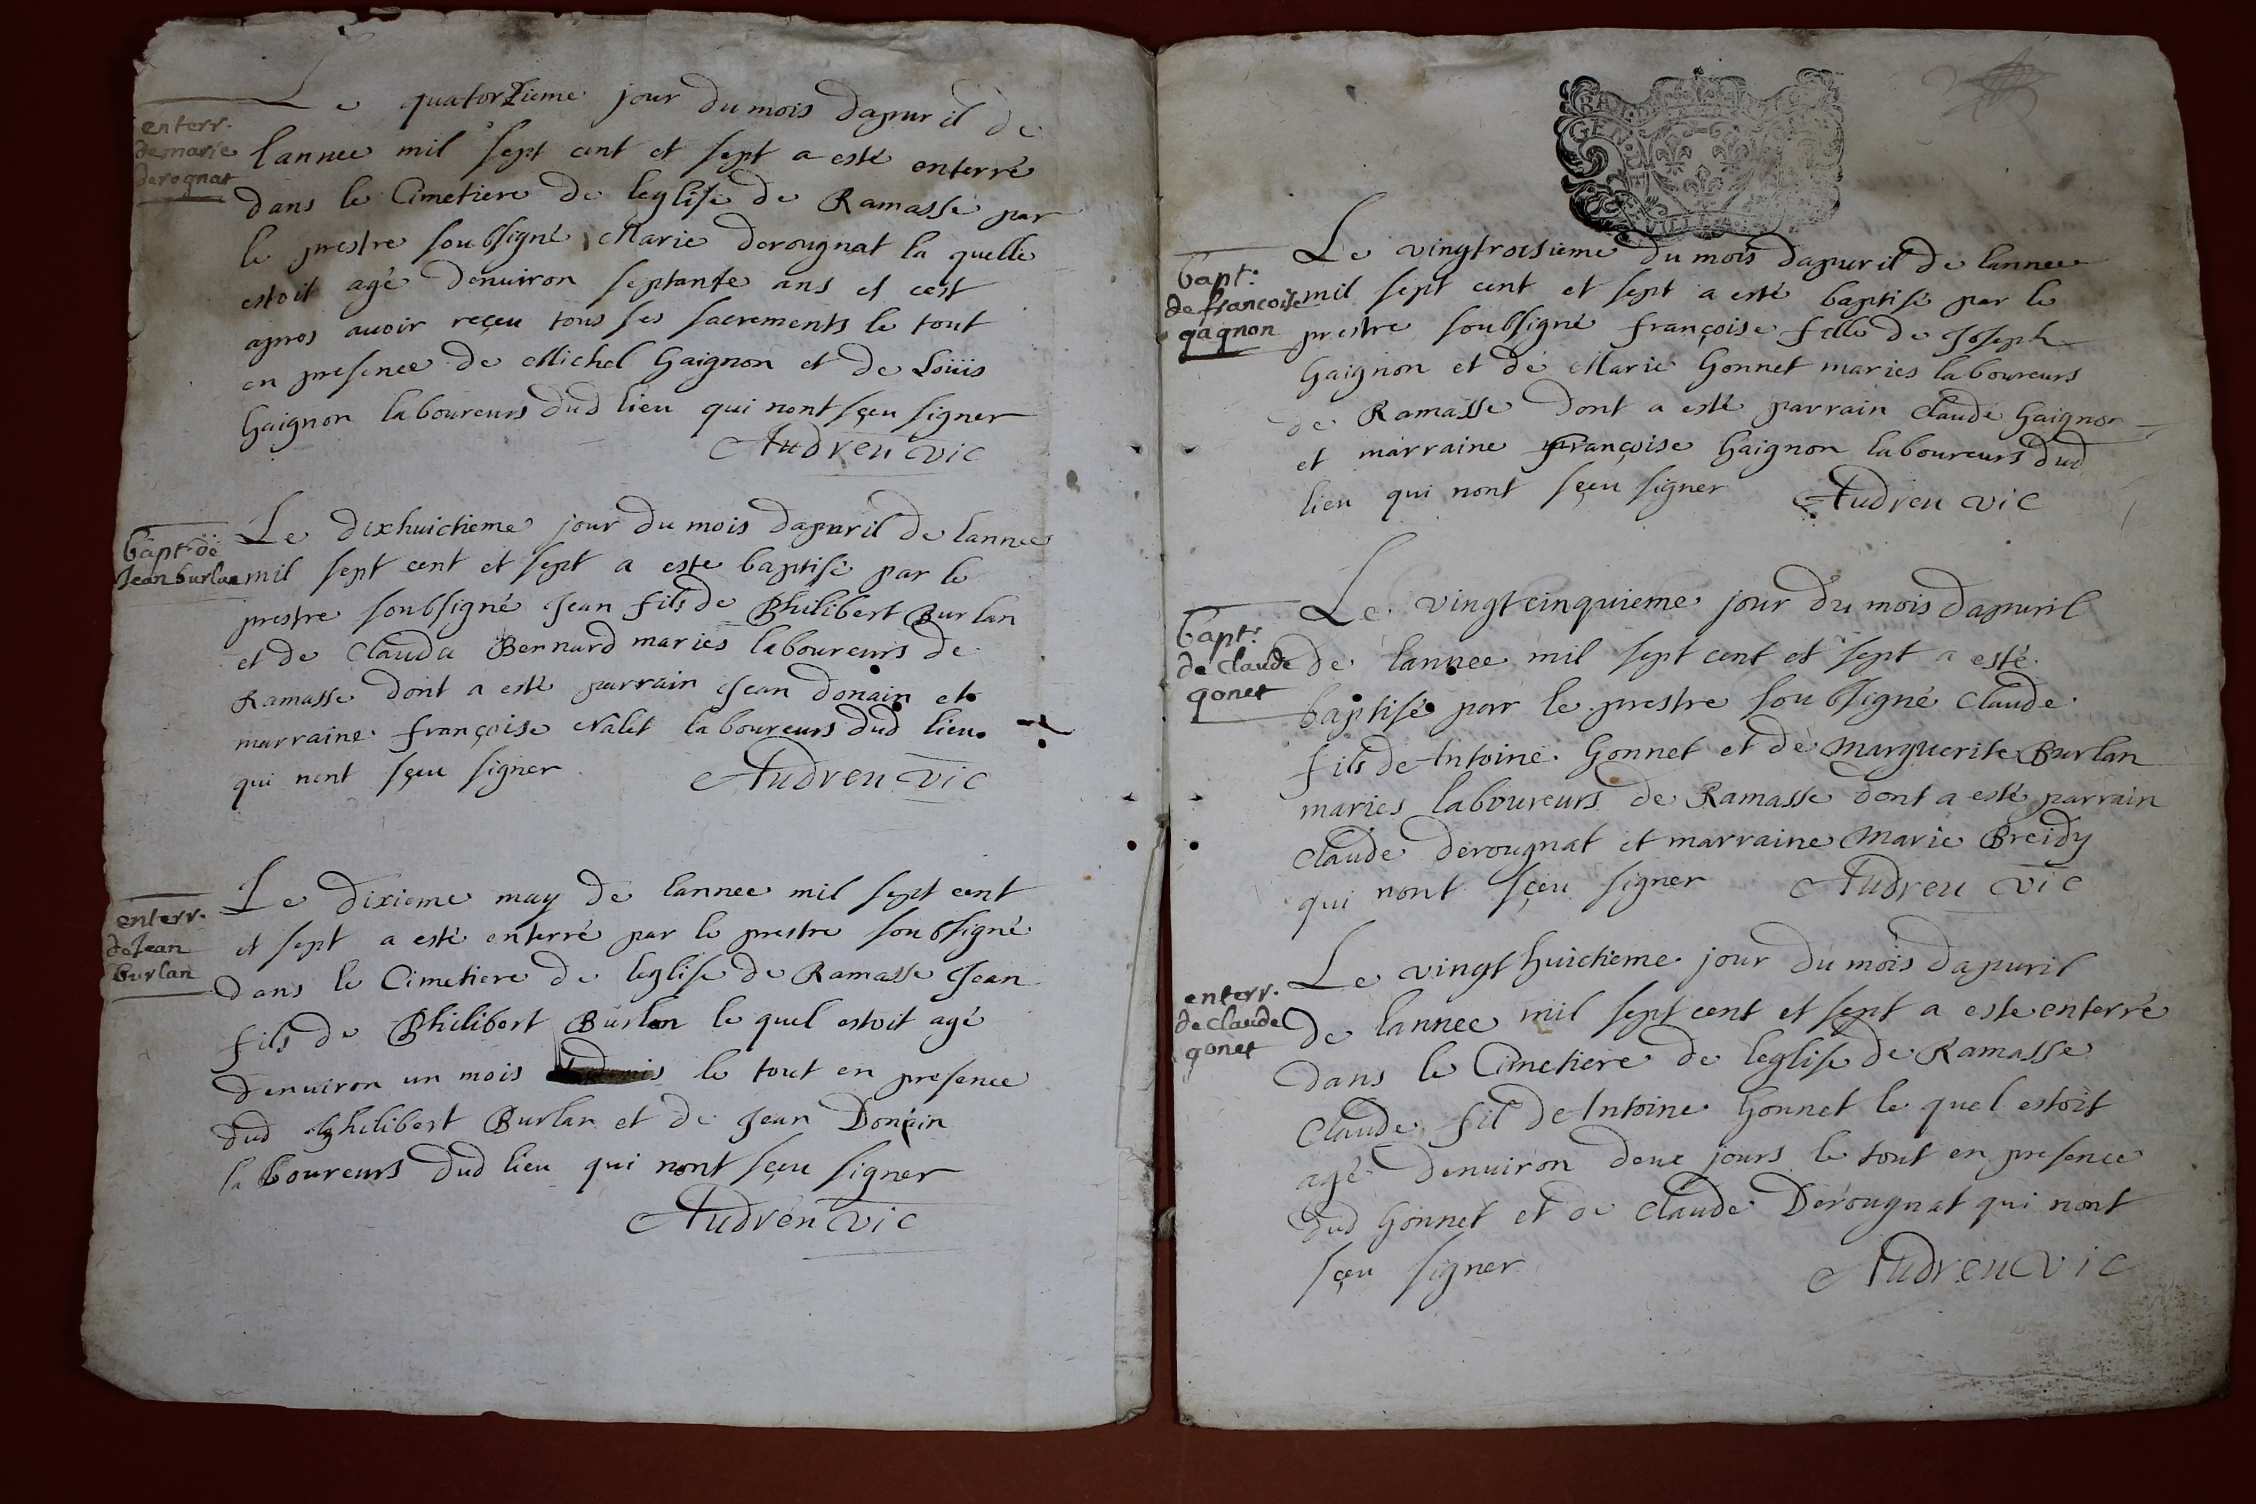 enterr.
de marie
derognat
Le quatorzieme jour du mois dapuril de
lannee mil sept cent et sept a esté enterré
dans le Cimetiere de leglise de Ramasse par
le prestre soubsigné Marie derougnat la quelle
estoit agé denuiron septante ans et cest
apres auoir reçeu tous ses sacrements le tout
en presence de Michel Gaignon et de Loüis
Gaignon laboureurs dud lieu qui nont sçeu signer
Audreu vic
bapt. de
Jean burlan
Le dixhuictieme jour du mois dapuril de lannee
mil sept cent et sept a este baptisé par le
prestre soubsigné Jean fils de Philibert Burlan
et de Clauda Bernard maries laboureurs de
Ramasse dont a esté parrain Jean donain et
marraine françoise Nalet laboureurs dud lieu
qui nont sçeu signer
Audreu vic
enterr.
de Jean
burlan
Le dixieme may de lannee mil sept cent
et sept a esté enterré par le prestre soubsigné
dans le Cimetiere de leglise de Ramasse Jean
fils de Philibert Burlan le quel estoit agé
denuiron un mois le tout en presence
dud Philibert Burlan et de Jean Donain
laboureurs dud lieu qui nont sçeu signer
Audreu vic
GEN
bapt.
de francoise
gagnon
Le vingtroisieme du mois dapuril de lannee
mil sept cent et sept a esté baptisé par le
prestre soubsigné françoise fille de Joseph
Gaignon et de Marie Gonnet maries laboureurs
de Ramasse dont a esté parrain Claude Gaignon
et marraine françoise Gaignon laboureurs dud
lieu qui nont sçeu signer
Audreu vic
bapt.
de claude
gonet
Le vingtcinquieme jour du mois dapuril
de lannee mil sept cent et sept a esté
baptisé par le prestre soubsigné Claude
fils de Antoine Gonnet et de Marguerite Burlan
maries laboureurs de Ramasse dont a esté parrain
Claude derougnat et marraine Marie Breidy
qui nont sçeu signer
Audreu vic
enterr.
de claude
gonet
Le vingthuictieme jour du mois dapuril
de lannee mil sept cent et sept a este enterré
dans le Cimetiere de leglise de Ramasse
Claude fil de Antoine Gonnet le quel estoit
agé denuiron deux jours le tout en presence
dud Gonnet et de Claude Derougnat qui nont
sçeu signer
Audreu vic